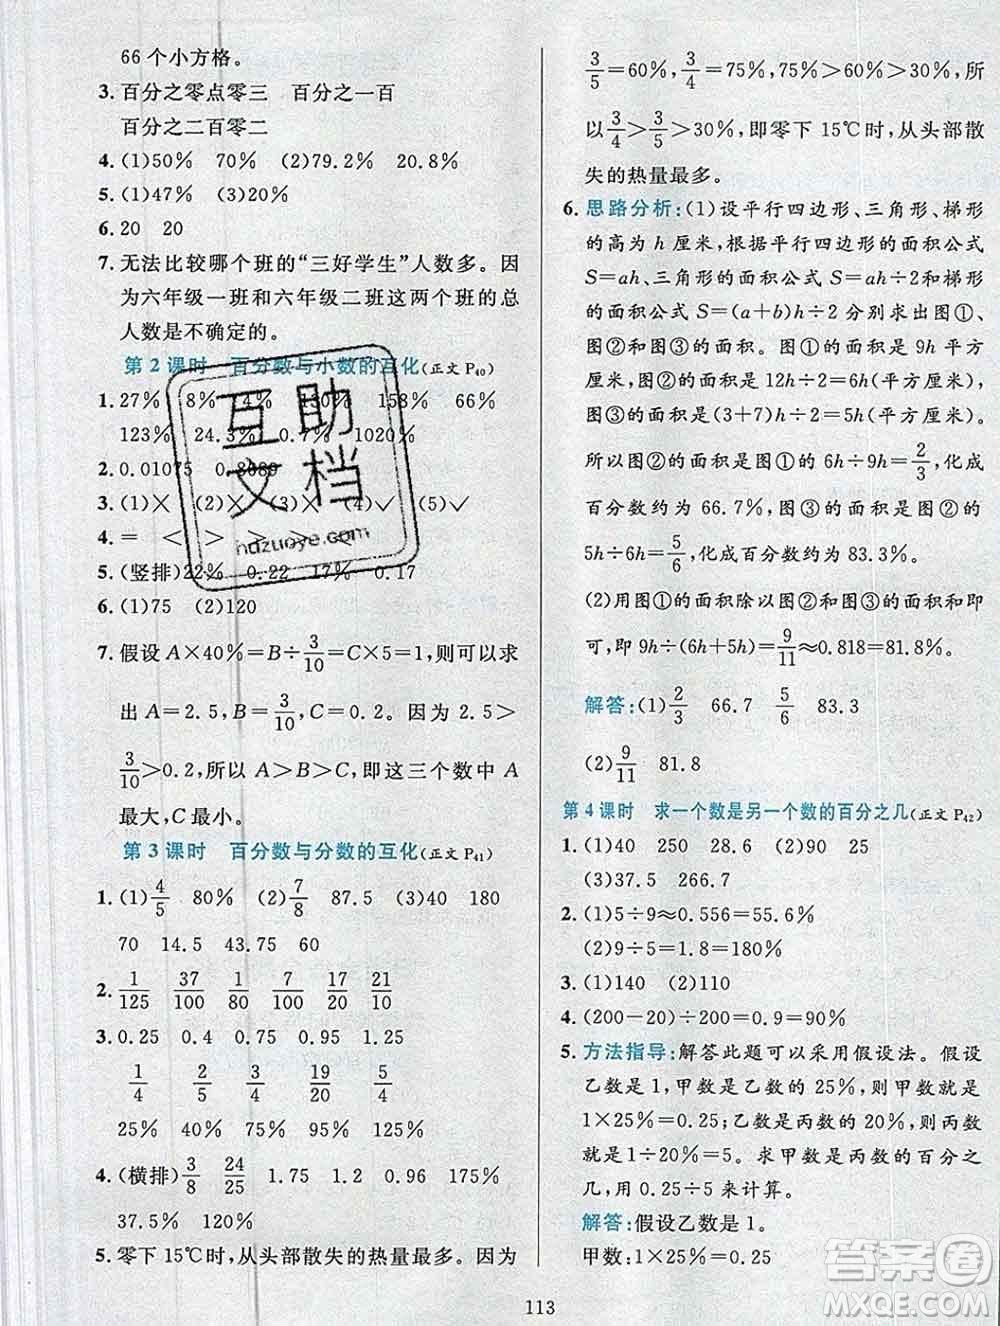 66个小方格。
3. 百分之零点零三　百分之一百
百分之二百零二
4. (1)50%　70%　(2)79.2%　20.8%
5. (1)47%　(3)20%
6. 20　20
7. 无法比较哪个班的“三好学生”人数多。因
为六年级一班和六年级二班这两个班的总
人数是不确定的。
第2课时　百分数与小数的互化(正文P₄₀)
1. 27%　8%　4%　130%　158%　66%
123%　24.3%　0.7%　1020%
2. 0.01075　0.8089
3. (1)×　(2)×　(3)×　(4)×　(5)✓
4. =　<　>　>
5. (竖排)22%　0.22　17%　0.17
6. (1)75　(2)120
7. 假设A×40%=B÷3/10=C×5=1，则可以求
出A=2.5，B=3/10，C=0.2。因为2.5>
3/10>0.2，所以A>B>C，即这三个数中A
最大，C最小。
第3课时　百分数与分数的互化(正文P₄₁)
1. (1)4/5　80%　(2)7/8　87.5　(3)2　40　180
70　14.5　43.75　60
2. 1/125　37/100　1/80　7/100　17/20　21/10
3. 0.25　0.4　0.75　0.95　1.25
1/4　2/5　3/4　19/20　5/4
25%　40%　75%　95%　125%
4. (横排)3/8　24/25　1.75　1.2　0.96　175%
37.5%　120%
5. 零下15℃时，从头部散失的热量最多。因为
3/5=60%，3/4=75%，75%>60%>30%，所
以3/4>3/5>30%，即零下15℃时，从头部散
失的热量最多。
6. 思路分析：(1)设平行四边形、三角形、梯形
的高为h厘米，根据平行四边形的面积公式
S=ah、三角形的面积公式S=ah÷2和梯形
的面积公式S=(a+b)h÷2分别求出图①、
图②和图③的面积。图①的面积是9h平方
厘米，图②的面积是12h÷2=6h(平方厘米)，
图③的面积是(3+7)h÷2=5h(平方厘米)。
所以图②的面积是图①的6h÷9h=2/3，化成
百分数约是66.7%；图③的面积是图②的
5h÷6h=5/6，化成百分数约是83.3%。
(2)用图①的面积除以图②和图③的面积和即
可，即9h÷(6h+5h)=9/11≈0.818=81.8%。
解答：(1)2/3　66.7　5/6　83.3
(2)9/11　81.8
第4课时　求一个数是另一个数的百分之几(正文P₄₂)
1. (1)40　250　28.6　(2)90　25
(3)37.5　266.7
2. (1)5÷9≈0.556=55.6%
(2)9÷5=1.8=180%
3. (1)140　(2)110
4. (200-20)÷200=0.9=90%
5. 方法指导：解答此题可以采用假设法。假设
乙数是1，甲数是乙数的25%，则甲数是
1×25%=0.25；乙数是丙数的20%，则丙数
是1÷20%=5。求甲数是丙数的百分之
几，用0.25÷5来计算。
解答：假设乙数是1。
甲数：1×25%=0.25
113
互助
文档
hdzuoye.com
答案圈
MXQE.COM